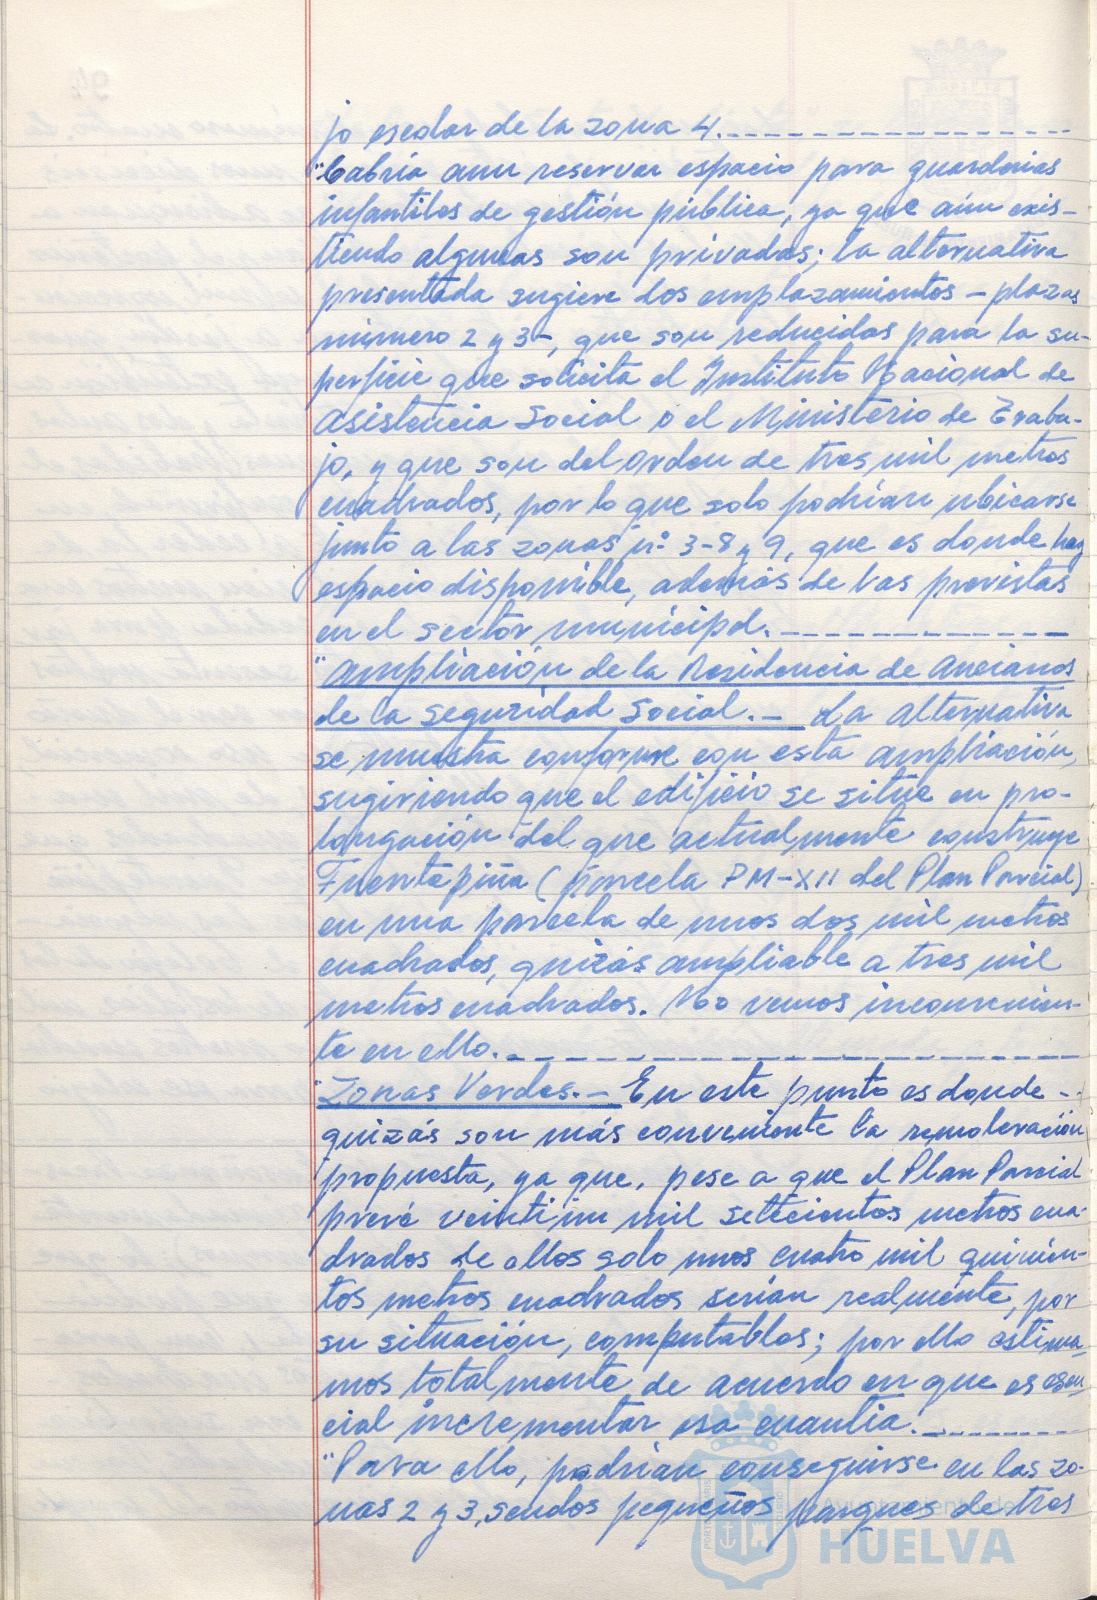 jo escolar de la zona 4.
"Cabría aun reservar espacio para guarderías
infantiles de gestión pública, ya que aún exis-
tiendo algunas son privadas; la alternativa
presentada sugiere dos emplazamientos - plazas
número 2 y 3-, que son reducidas para la su-
perficie que solicita el Instituto Nacional de
Asistencia Social o el Ministerio de Traba-
jo, y que son del orden de tres mil metros
cuadrados, por lo que solo podrían ubicarse
junto a las zonas nº 3-8 y 9, que es donde hay
espacio disponible, además de las previstas
en el sector municipal.
"Ampliación de la Residencia de Ancianos
de la Seguridad Social.- La alternativa
se muestra conforme con esta ampliación,
sugiriendo que el edificio se sitúe en pro-
longación del que actualmente construye
Fuentepiña (parcela PM-XII del Plan Parcial)
en una parcela de unos dos mil metros
cuadrados, quizás ampliable a tres mil
metros cuadrados. No vemos inconvenien-
te en ello.
"Zonas Verdes.- En este punto es donde -
quizás son más conveniente la remodelación
propuesta, ya que, pese a que el Plan Parcial
prevé veintiún mil setecientos metros cua-
drados de ellos solo unos cuatro mil quinien-
tos metros cuadrados serían realmente, por
su situación, computables; por ello estima-
mos totalmente de acuerdo en que es esen-
cial incrementar esa cuantía.
"Para ello, podrían conseguirse en las zo-
nas 2 y 3, sendos pequeños parques de tres
Ayuntamiento de
HUELVA